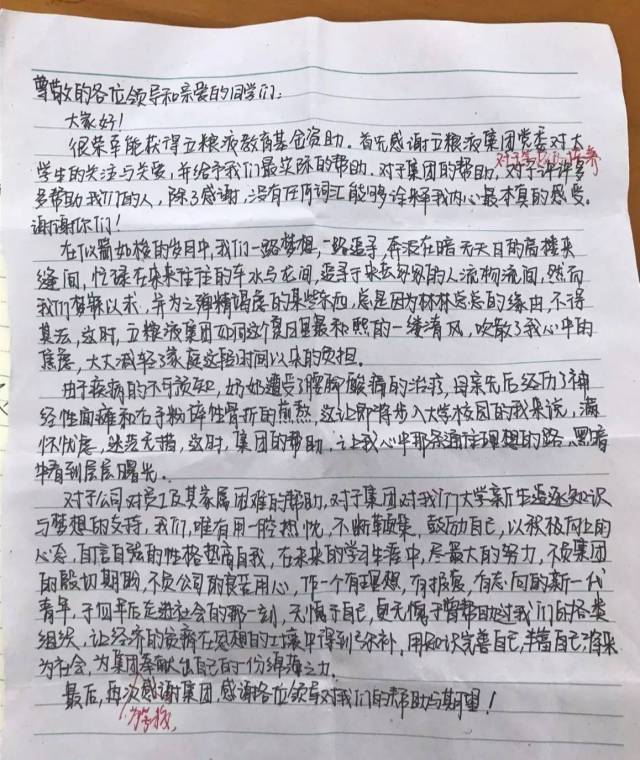 尊敬的各位领导和亲爱的同学们:
大家好!
很荣幸能获得五粮液教育基金资助。首先感谢五粮液集团党委对大
学生的关注与关爱,并给予我们最实际的帮助。对于集团的帮助,对于许许多
多帮助我们的人,除了感谢,没有任何词汇能够诠释我内心最本真的感受。
谢谢你们!
在似箭如梭的岁月中,我们一路梦想,一路追寻,奔波在暗无天日的高楼夹
缝间,忙碌在来来往往的车水马龙间,追寻于来去匆匆的人流物流间,然而
我们梦寐以求,并为之殚精竭虑的某些东西,总是因为林林总总的缘由,不得
其去,这时,五粮液集团如同这个夏日里最和熙的一缕清风,吹散了我心中的
焦虑,大大减轻了家庭这段时间以来的负担。
由于疾病的不可预知,奶奶遭受了腰脚酸痛的治疗,母亲先后经历了神
经性面瘫和右手粉碎性骨折的煎熬,这让即将步入大学校园的我来说,满
怀忧虑,迷茫无措,这时,集团的帮助,让我心中那条通往理想的路,黑暗
中看到层层曙光。
对于公司对员工及其家属困难的帮助,对于集团对我们大学新生追逐知识
与梦想的支持,我们,唯有用一腔热忱,不断凝集,鼓励自己,以积极向上的
心态,自信自强的性格垫高自我,在未来的学习生涯中,尽最大的努力,不负集团
的殷切期盼,不负公司的良苦用心,作一个有理想,有抱负,有志向的新一代
青年,于四年后走进社会的那一刻,无愧于自己,更无愧于曾帮助过我们的各类
组织,让经济的贫瘠在思想的土壤中得到弥补,用知识完善自己,丰富自己,将来
为社会,为集团奉献出自己的一份绵薄之力。
最后,再次感谢集团,感谢各位领导对我们的帮助与期望!